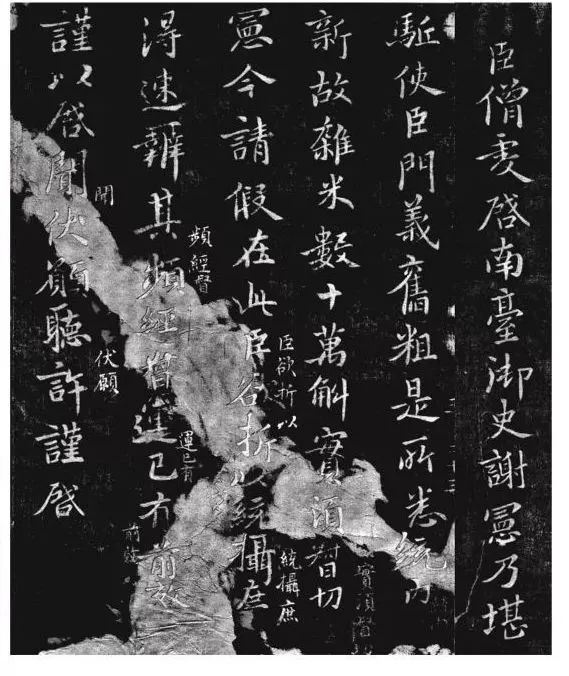 臣僧虔啓南臺御史謝憲乃堪
駈使臣門義舊粗是所悉統内
新故雜米數十萬斛實須督切
實須督切
憲今請假在此臣欲折以統攝庶
臣欲折以
統攝庶
得速辦其頻經督運已有前效
頻經督
運已有
前效
謹以啓聞伏願聽許謹啓
聞
伏願